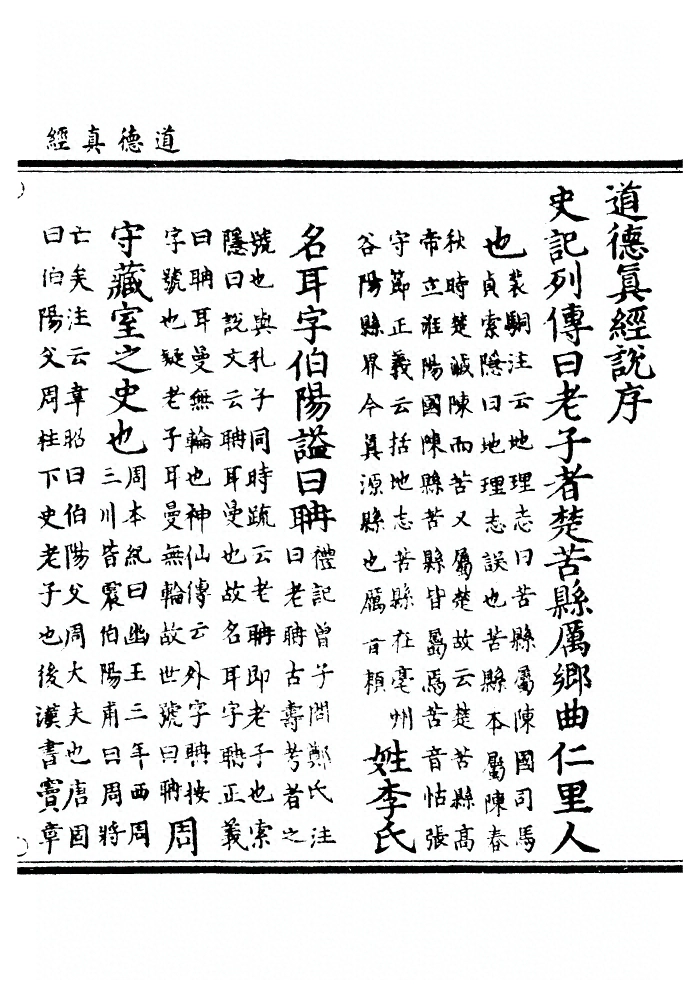 道德真經
道德眞經說序
史記列傳曰老子者楚苦縣厲鄉曲仁里人
也
裴駰注云地理志曰苦縣屬陳國司馬
貞索隱曰地理志誤也苦縣本屬陳春
秋時楚滅陳而苦又屬楚故云楚苦縣高
帝立淮陽國陳縣苦縣皆屬焉苦音怙張
守節正義云括地志苦縣在亳州
谷陽縣界今眞源縣也厲音賴
姓李氏
名耳字伯陽謚曰聃
禮記曾子問鄭氏注
曰老聃古壽考者之
號也與孔子同時疏云老聃即老子也索
隱曰說文云聃耳曼也故名耳字聃正義
曰聃耳曼無輪也神仙傳云外字聃按
字號也疑老子耳曼無輪故世號曰聃
周
守藏室之史也
周本紀曰幽王三年西周
三川皆震伯陽甫曰周將
亡矣注云韋昭曰伯陽父周大夫也唐固
曰伯陽父周柱下史老子也後漢書竇章